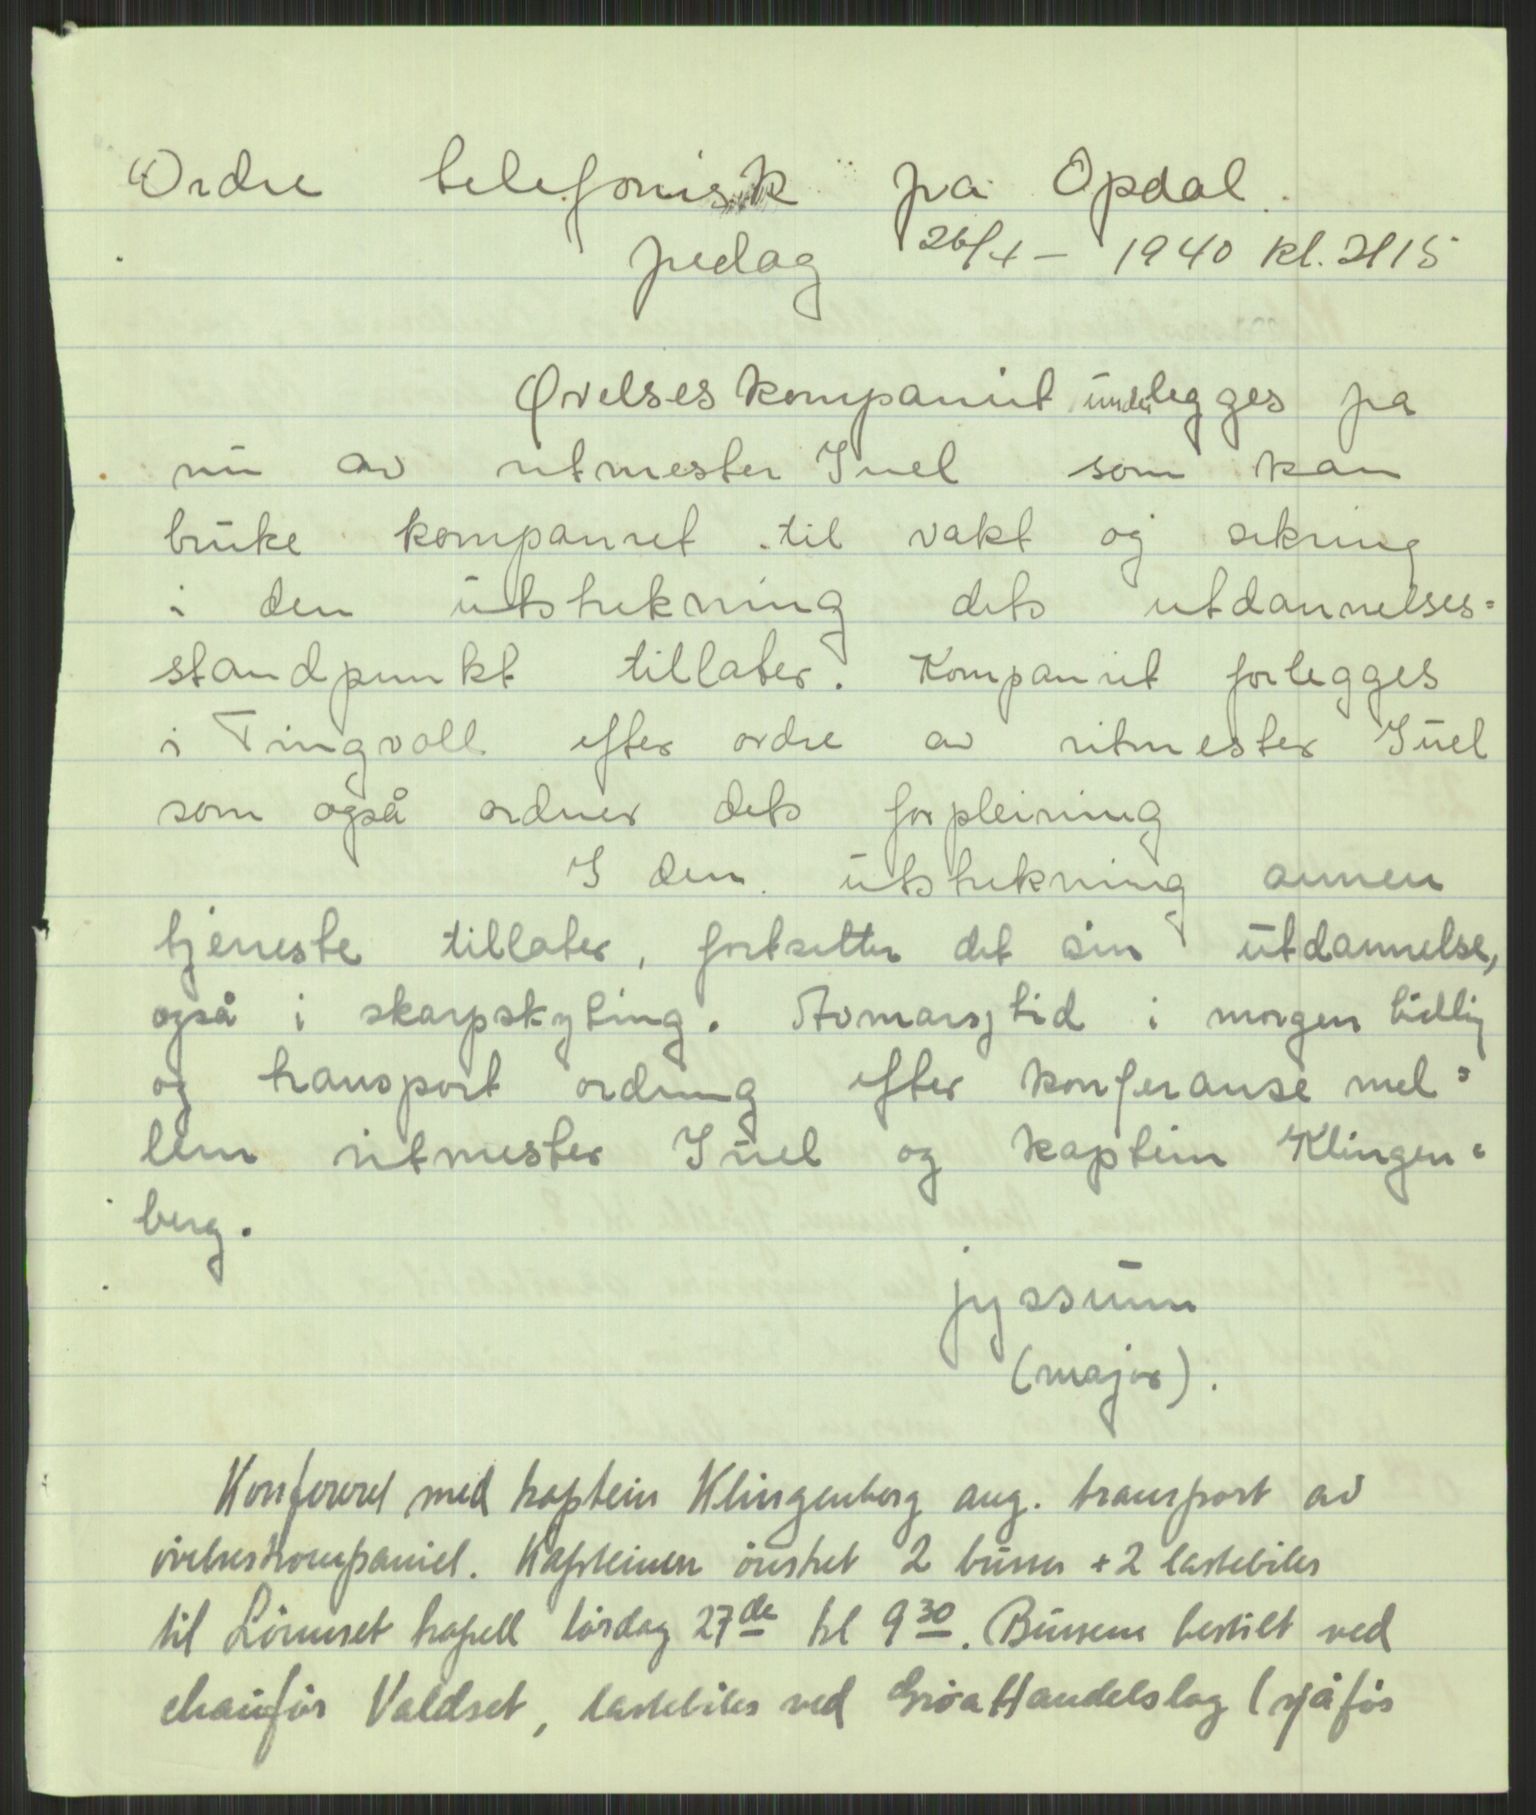 Ordre telefonisk på Opdal.
fredag 26/4 – 1940 kl. 2115
Øvelseskompaniet underlegges fra
nu av ritmester Juel som kan
bruke kompaniet til vakt og sikring
i den utstrekning dets utdannelses=
standpunkt tillater. Kompaniet forlegges
i Tingvoll efter ordre av ritmester Juel
som også ordner dets forpleining
I den utstrekning annen
tjeneste tillater, fortsetter det sin utdannelse,
også i skarpskyting. Avmarsjtid i morgen tidlig
og transport ordning efter konferanse mel=
lem ritmester Juel og kaptein Klingen=
berg.
Jyssum
(major).
Konfereret med kaptein Klingenberg ang. transport av
øvelseskompaniet. Kapteinen ønsket 2 busser + 2 lastebiler
til Lønset kapell lørdag 27de kl 9 30. Bussene bestilt ved
chauffør Valdset, lastebiler ved Grøa Handelslag (sjåfør